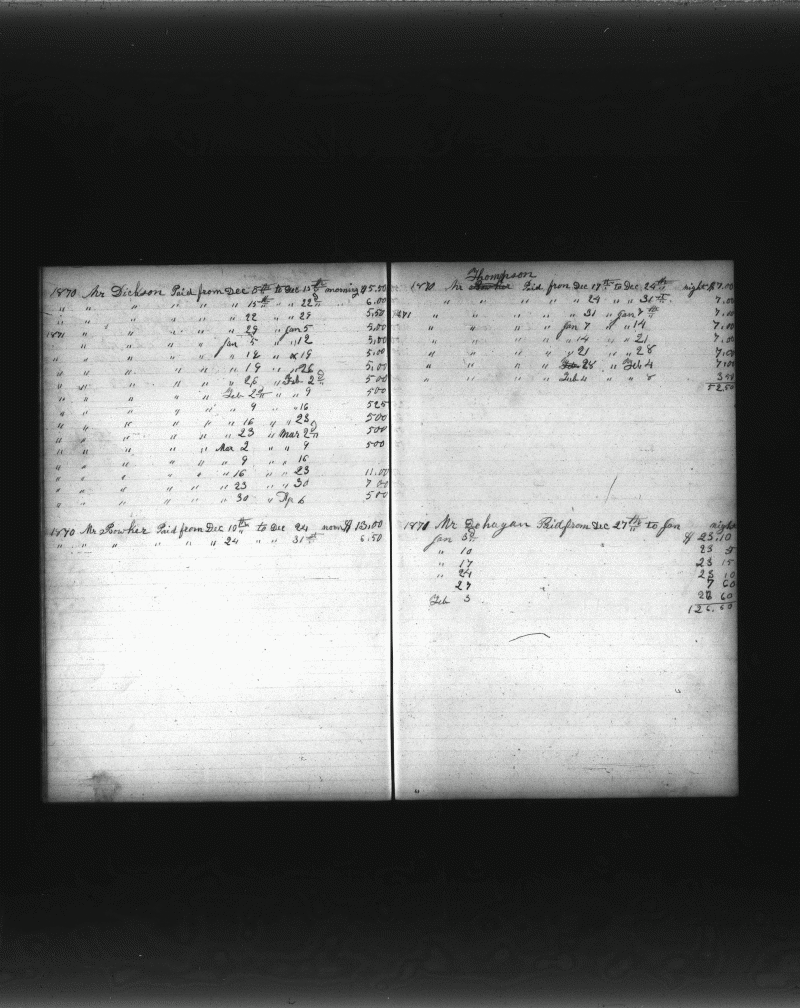 1870 Mr Dickson Paid from Dec 8th to Dec 15th morning $5.50
" " " " " " 15th " " 22d 6.00
" " " " " " 22 " " 29 5.50
1871 " " " " " 29 " Jan 5 5.00
" " " " " Jan 5 " " 12 5.00
" " " " " " 12 " " 19 5.00
" " " " " " 19 " " 26 5.00
" " " " " " 26 " Feb 2d 500
" " " " " Feb 2d " " 9 500
" " " " " " 9 " " 16 525
" " " " " " 16 " " 23 500
" " " " " " 23 " Mar 2d 500
" " " " " Mar 2 " " 9 500
" " " " " " 9 " " 16
" " " " " " 16 " " 23 11.00
" " " " " " 23 " " 30 7.00
" " " " " " 30 " Ap 6 500
1870 Mr Paid from Dec 19th to Dec 24 noon $13.00
" " " " " " 24 " " 31st 6.50
Thompson
1870 Mr Paid from Dec 17th to Dec 24th night $7.00
" " " " " 24 " " 31st 7.00
1871 " " " " " 31 " Jan 7th 7.00
" " " " Jan 7 " " 14 7.00
" " " " " 14 " " 21 7.00
" " " " " 21 " " 28 7.00
" " " " 28 " Feb 4 7.00
" " " " Feb 4 " " 8
52.50
1870 Mr Gohagan Paid from Dec 27th to Jan night
Jan 3d $ 23.10
" 10 23
" 17 23 15
" 24 23 10
27 7 60
Feb 3 60
126.60